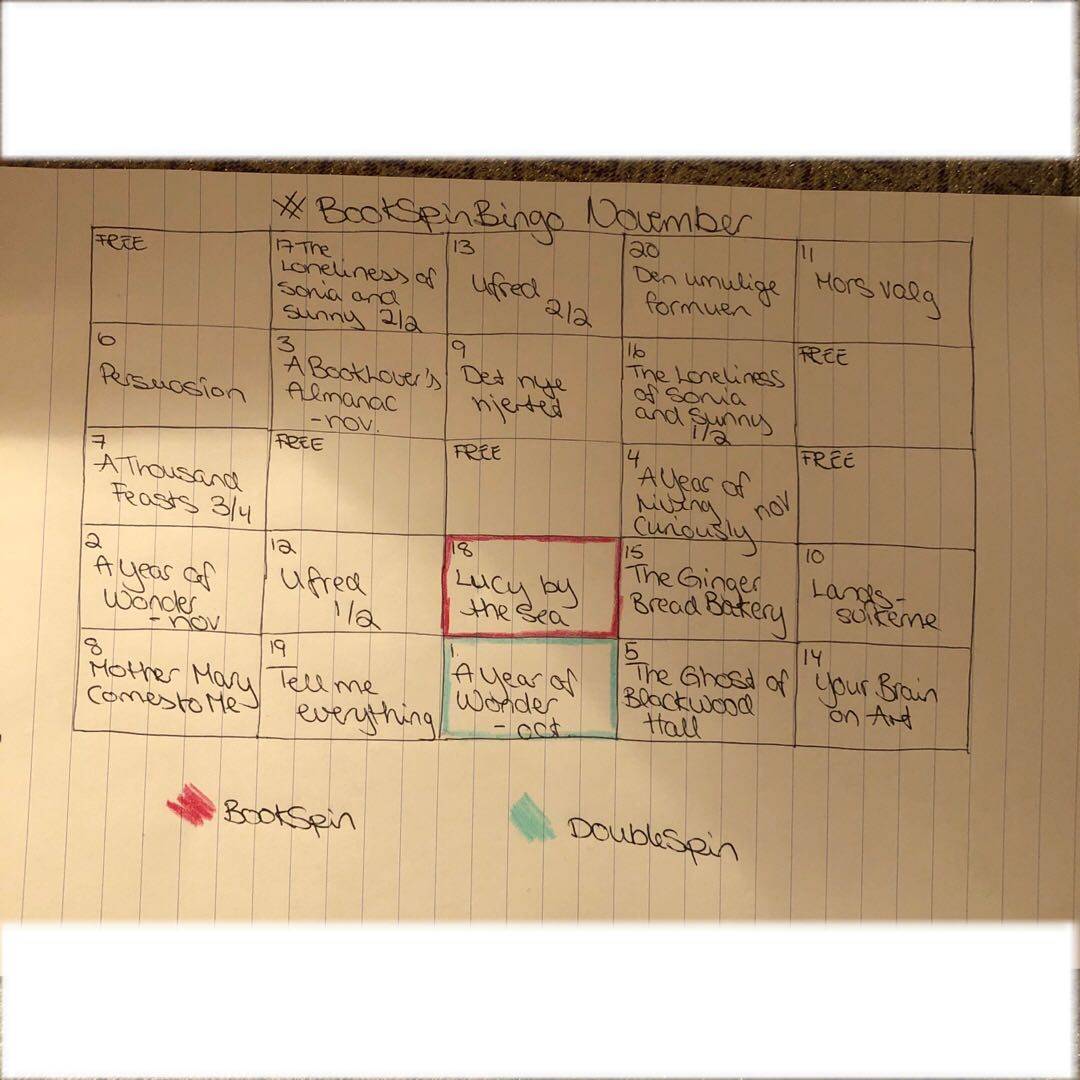 # BookSpinBingo November
FREE
17 The
Loneliness of
Sonia and
Sunny 2/2
13
Ufred
2/2
20
Den umulige
formuen
11
Mors valg
6
Persuasion
3
A BookLover's
Almanac
- nov.
9
Det nye
hjertet
16
The Loneliness
of Sonia
and Sunny
1/2
FREE
7
A Thousand
Feasts 3/4
FREE
FREE
4
A Year of
Living nov
Curiously
FREE
2
A year of
Wonder
- nov
12
Ufred
1/2
18
Lucy by
the Sea
15
The Ginger
Bread Bakery
10
Lands-
svikerne
8
Mother Mary
Comes to Me
19
Tell me
everything
1.
A Year of
Wonder
- oct.
5
The Ghost of
Blackwood
Hall
14
Your Brain
on Art
BookSpin
DoubleSpin